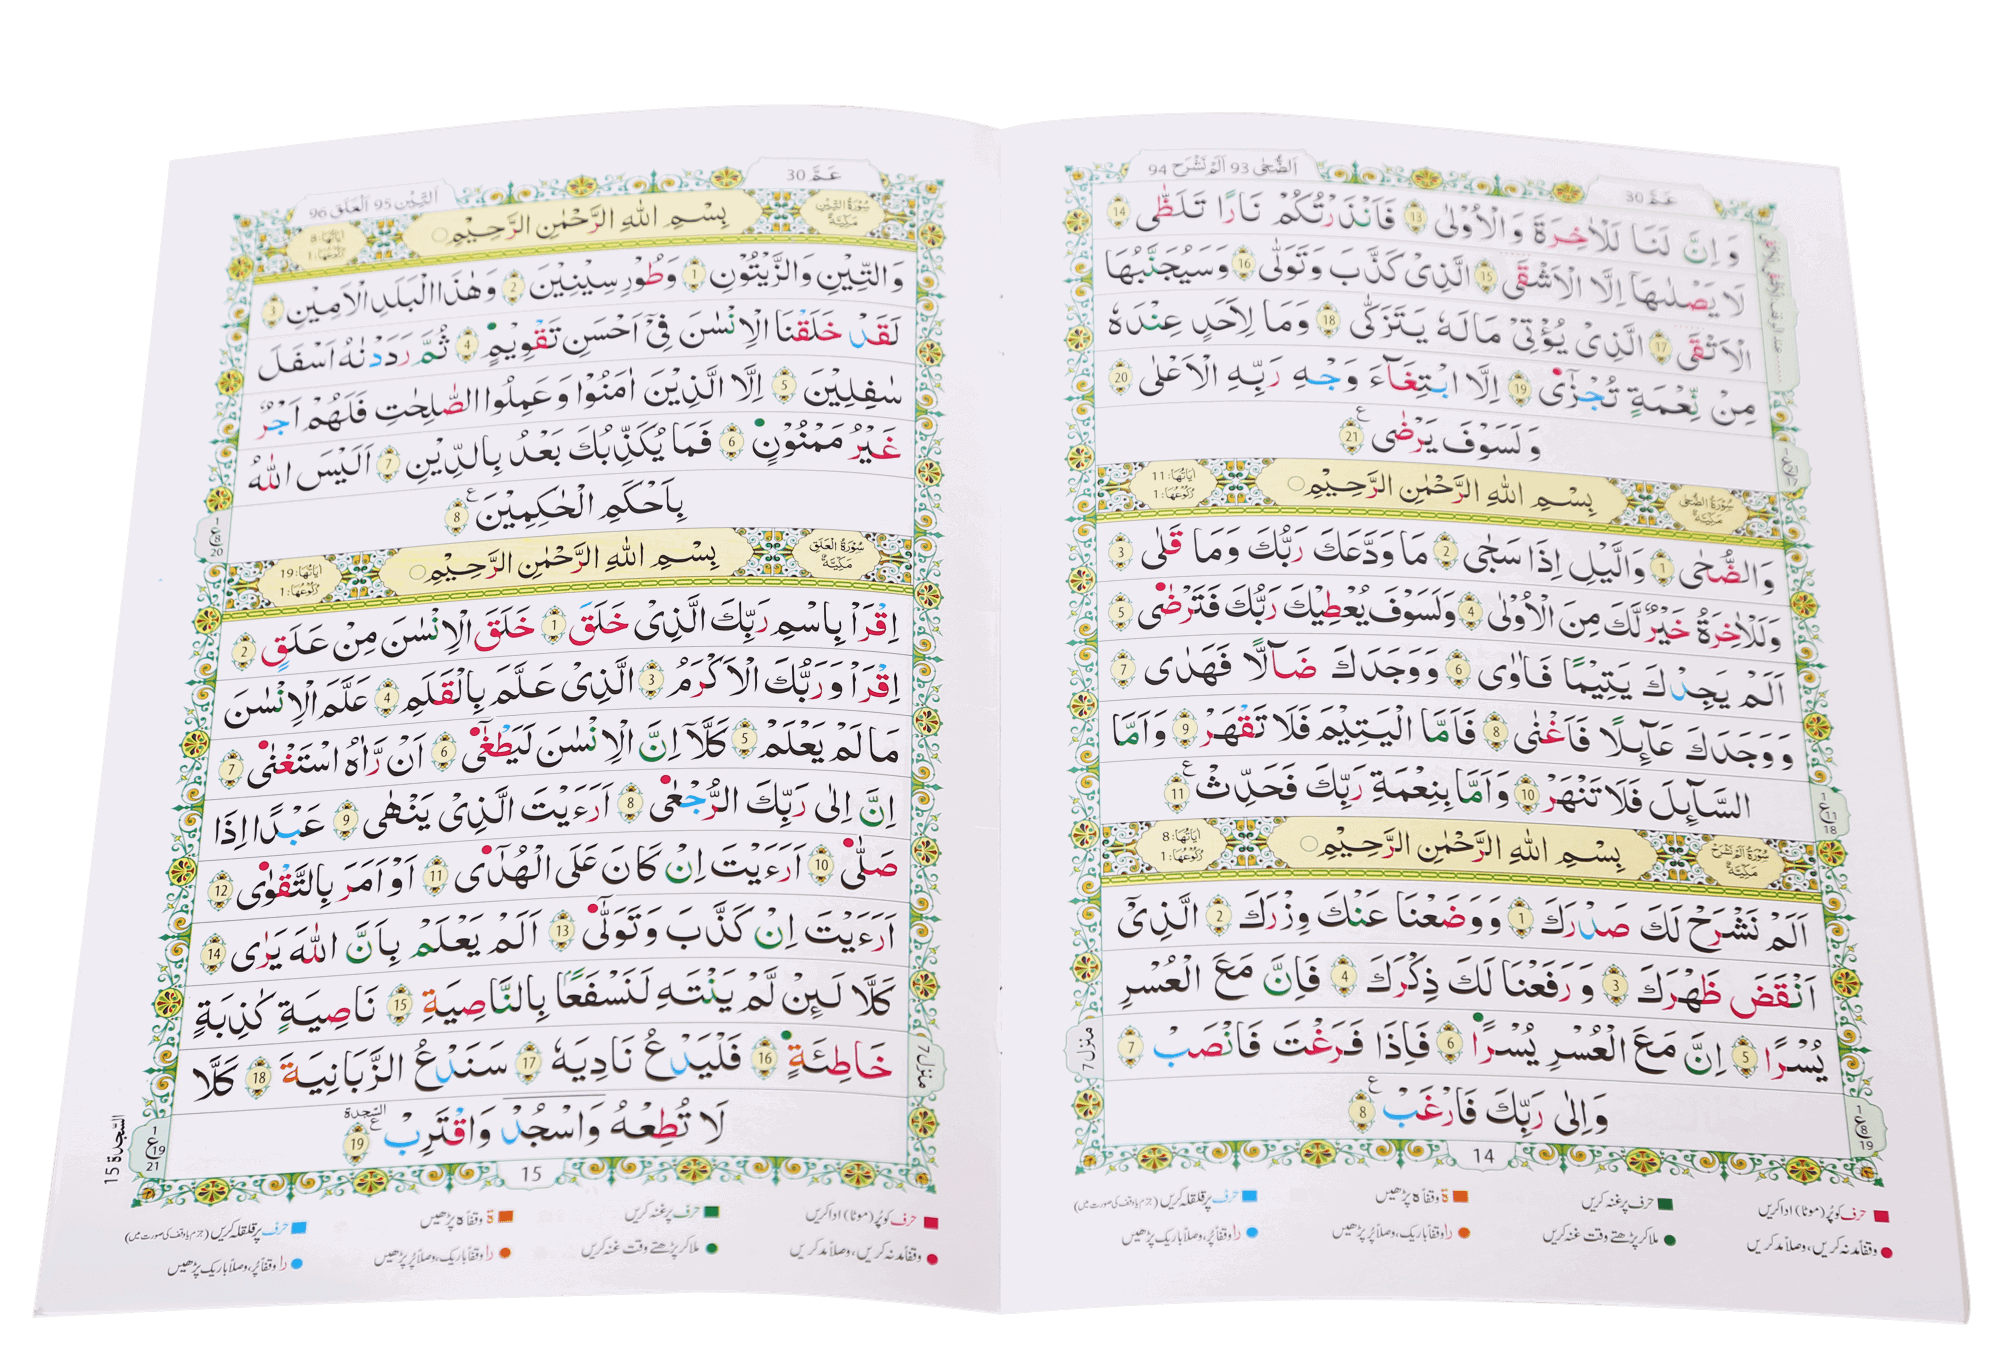 عَمَّ 30
اَلضُّحٰى 93 اَلَمْ نَشْرَحْ 94
وَ اِنَّ لَنَا لَلْاٰخِرَةَ وَ الْاُوْلٰى 13 فَاَنْذَرْتُكُمْ نَارًا تَلَظّٰى 14
لَا يَصْلٰىهَاۤ اِلَّا الْاَشْقَى 15 الَّذِیْ كَذَّبَ وَ تَوَلّٰى 16 وَ سَيُجَنَّبُهَا
الْاَتْقَى 17 الَّذِیْ يُؤْتِیْ مَالَهٗ يَتَزَكّٰى 18 وَ مَا لِاَحَدٍ عِنْدَهٗ
مِنْ نِّعْمَةٍ تُجْزٰۤى 19 اِلَّا ابْتِغَآءَ وَجْهِ رَبِّهِ الْاَعْلٰى 20
وَ لَسَوْفَ يَرْضٰى 21 ع
سُوْرَةُ الضُّحٰى مَكِّيَّةٌ
بِسْمِ اللّٰهِ الرَّحْمٰنِ الرَّحِيْمِ
اٰيَاتُهَا: 11 رُكُوْعُهَا: 1
وَ الضُّحٰى 1 وَ الَّيْلِ اِذَا سَجٰى 2 مَا وَدَّعَكَ رَبُّكَ وَ مَا قَلٰى 3
وَ لَلْاٰخِرَةُ خَيْرٌ لَّكَ مِنَ الْاُوْلٰى 4 وَ لَسَوْفَ يُعْطِيْكَ رَبُّكَ فَتَرْضٰى 5
اَلَمْ يَجِدْكَ يَتِيْمًا فَاٰوٰى 6 وَ وَجَدَكَ ضَآلًّا فَهَدٰى 7
وَ وَجَدَكَ عَآىِٕلًا فَاَغْنٰى 8 فَاَمَّا الْيَتِيْمَ فَلَا تَقْهَرْ 9 وَ اَمَّا
السَّآىِٕلَ فَلَا تَنْهَرْ 10 وَ اَمَّا بِنِعْمَةِ رَبِّكَ فَحَدِّثْ 11 ع
1 ع 11 18
سُوْرَةُ اَلَمْ نَشْرَحْ مَكِّيَّةٌ
بِسْمِ اللّٰهِ الرَّحْمٰنِ الرَّحِيْمِ
اٰيَاتُهَا: 8 رُكُوْعُهَا: 1
اَلَمْ نَشْرَحْ لَكَ صَدْرَكَ 1 وَ وَضَعْنَا عَنْكَ وِزْرَكَ 2 الَّذِیْۤ
اَنْقَضَ ظَهْرَكَ 3 وَ رَفَعْنَا لَكَ ذِكْرَكَ 4 فَاِنَّ مَعَ الْعُسْرِ
يُسْرًا 5 اِنَّ مَعَ الْعُسْرِ يُسْرًا 6 فَاِذَا فَرَغْتَ فَانْصَبْ 7
وَ اِلٰى رَبِّكَ فَارْغَبْ 8 ع
1 ع 8 19
منزل 7
14
حرف کو پُر (موٹا) ادا کریں
حرف پر غنہ کریں
ة وقفاً ہ پڑھیں
حرف پر قلقلہ کریں (جزم یا وقف کی صورت میں)
وقفاً مد نہ کریں، وصلاً مد کریں
ملا کر پڑھتے وقت غنہ کریں
را وقفاً باریک، وصلاً پُر پڑھیں
را وقفاً پُر، وصلاً باریک پڑھیں
عَمَّ 30
اَلتِّيْن 95 اَلْعَلَق 96
سُوْرَةُ التِّيْنِ مَكِّيَّةٌ
بِسْمِ اللّٰهِ الرَّحْمٰنِ الرَّحِيْمِ
اٰيَاتُهَا: 8 رُكُوْعُهَا: 1
وَ التِّيْنِ وَ الزَّيْتُوْنِ 1 وَ طُوْرِ سِيْنِيْنَ 2 وَ هٰذَا الْبَلَدِ الْاَمِيْنِ 3
لَقَدْ خَلَقْنَا الْاِنْسٰنَ فِیْۤ اَحْسَنِ تَقْوِيْمٍ 4 ثُمَّ رَدَدْنٰهُ اَسْفَلَ
سٰفِلِيْنَ 5 اِلَّا الَّذِيْنَ اٰمَنُوْا وَ عَمِلُوا الصّٰلِحٰتِ فَلَهُمْ اَجْرٌ
غَيْرُ مَمْنُوْنٍ 6 فَمَا يُكَذِّبُكَ بَعْدُ بِالدِّيْنِ 7 اَلَيْسَ اللّٰهُ
بِاَحْكَمِ الْحٰكِمِيْنَ 8 ع
1 ع 8 20
سُوْرَةُ الْعَلَقِ مَكِّيَّةٌ
بِسْمِ اللّٰهِ الرَّحْمٰنِ الرَّحِيْمِ
اٰيَاتُهَا: 19 رُكُوْعُهَا: 1
اِقْرَاْ بِاسْمِ رَبِّكَ الَّذِیْ خَلَقَ 1 خَلَقَ الْاِنْسٰنَ مِنْ عَلَقٍ 2
اِقْرَاْ وَ رَبُّكَ الْاَكْرَمُ 3 الَّذِیْ عَلَّمَ بِالْقَلَمِ 4 عَلَّمَ الْاِنْسٰنَ
مَا لَمْ يَعْلَمْ 5 كَلَّاۤ اِنَّ الْاِنْسٰنَ لَيَطْغٰۤى 6 اَنْ رَّاٰهُ اسْتَغْنٰى 7
اِنَّ اِلٰى رَبِّكَ الرُّجْعٰى 8 اَرَءَيْتَ الَّذِیْ يَنْهٰى 9 عَبْدًا اِذَا
صَلّٰى 10 اَرَءَيْتَ اِنْ كَانَ عَلَى الْهُدٰۤى 11 اَوْ اَمَرَ بِالتَّقْوٰى 12
اَرَءَيْتَ اِنْ كَذَّبَ وَ تَوَلّٰى 13 اَلَمْ يَعْلَمْ بِاَنَّ اللّٰهَ يَرٰى 14
كَلَّا لَىِٕنْ لَّمْ يَنْتَهِ لَنَسْفَعًۢا بِالنَّاصِيَةِ 15 نَاصِيَةٍ كَاذِبَةٍ
خَاطِئَةٍ 16 فَلْيَدْعُ نَادِيَهٗ 17 سَنَدْعُ الزَّبَانِيَةَ 18 كَلَّا
لَا تُطِعْهُ وَ اسْجُدْ وَ اقْتَرِبْ 19 السّجدة ع
منزل 7
1 ع 19 21
السّجدة 15
15
حرف کو پُر (موٹا) ادا کریں
حرف پر غنہ کریں
ة وقفاً ہ پڑھیں
حرف پر قلقلہ کریں (جزم یا وقف کی صورت میں)
وقفاً مد نہ کریں، وصلاً مد کریں
ملا کر پڑھتے وقت غنہ کریں
را وقفاً باریک، وصلاً پُر پڑھیں
را وقفاً پُر، وصلاً باریک پڑھیں